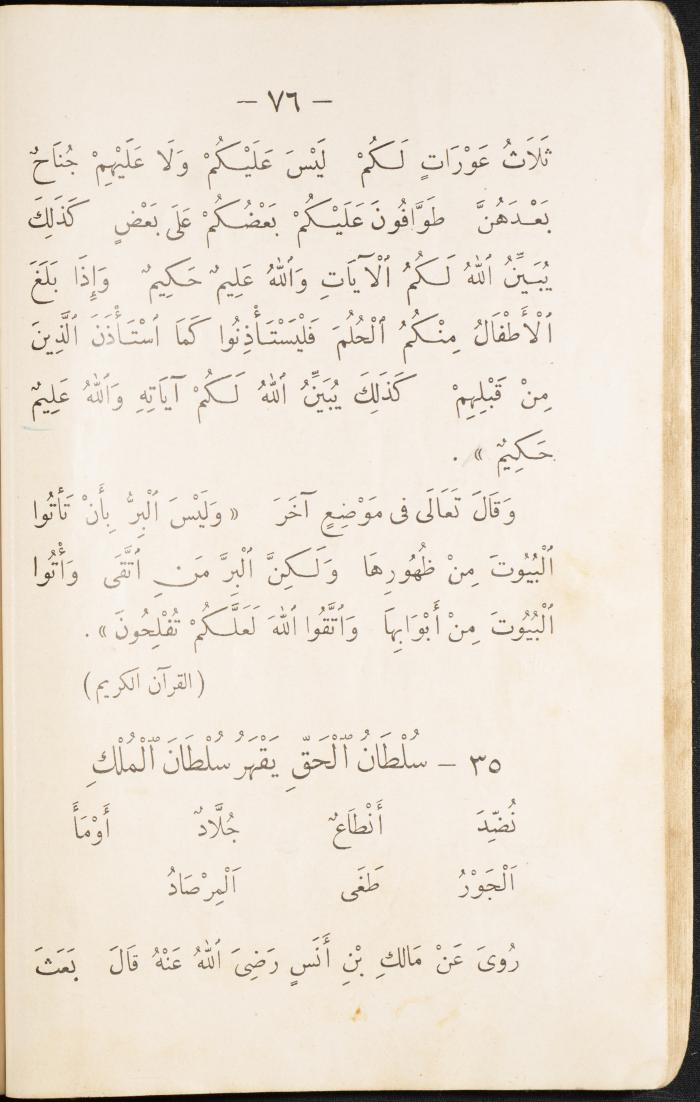 — ٧٦ —
ثَلَاثُ عَوْرَاتٍ لَكُمْ لَيْسَ عَلَيْكُمْ وَلَا عَلَيْهِمْ جُنَاحٌ
بَعْدَهُنَّ طَوَّافُونَ عَلَيْكُمْ بَعْضُكُمْ عَلَى بَعْضٍ كَذَلِكَ
يُبَيِّنُ ٱللهُ لَكُمُ ٱلْآيَاتِ وَٱللهُ عَلِيمٌ حَكِيمٌ وَإِذَا بَلَغَ
ٱلْأَطْفَالُ مِنْكُمُ ٱلْحُلُمَ فَلْيَسْتَأْذِنُوا كَمَا ٱسْتَأْذَنَ ٱلَّذِينَ
مِنْ قَبْلِهِمْ كَذَلِكَ يُبَيِّنُ ٱللهُ لَكُمْ آيَاتِهِ وَٱللهُ عَلِيمٌ
حَكِيمٌ » .
وَقَالَ تَعَالَى فى مَوْضِعٍ آخَرَ « وَلَيْسَ ٱلْبِرُّ بِأَنْ تَأْتُوا
ٱلْبُيُوتَ مِنْ ظُهُورِهَا وَلَكِنَّ ٱلْبِرَّ مَنِ ٱتَّقَى وَأْتُوا
ٱلْبُيُوتَ مِنْ أَبْوَابِهَا وَٱتَّقُوا ٱللهَ لَعَلَّكُمْ تُفْلِحُونَ » .
(القرآن الكريم)
٣٥ — سُلْطَانُ ٱلْحَقِّ يَقْهَرُ سُلْطَانَ ٱلْمُلْكِ
نُضِّدَ أَنْطَاعٌ جُلَّادٌ أَوْمَأَ
اَلْجَوْرُ طَغَى اَلْمِرْصَادُ
رُوِىَ عَنْ مَالِكِ بْنِ أَنَسٍ رَضِىَ ٱللهُ عَنْهُ قَالَ بَعَثَ